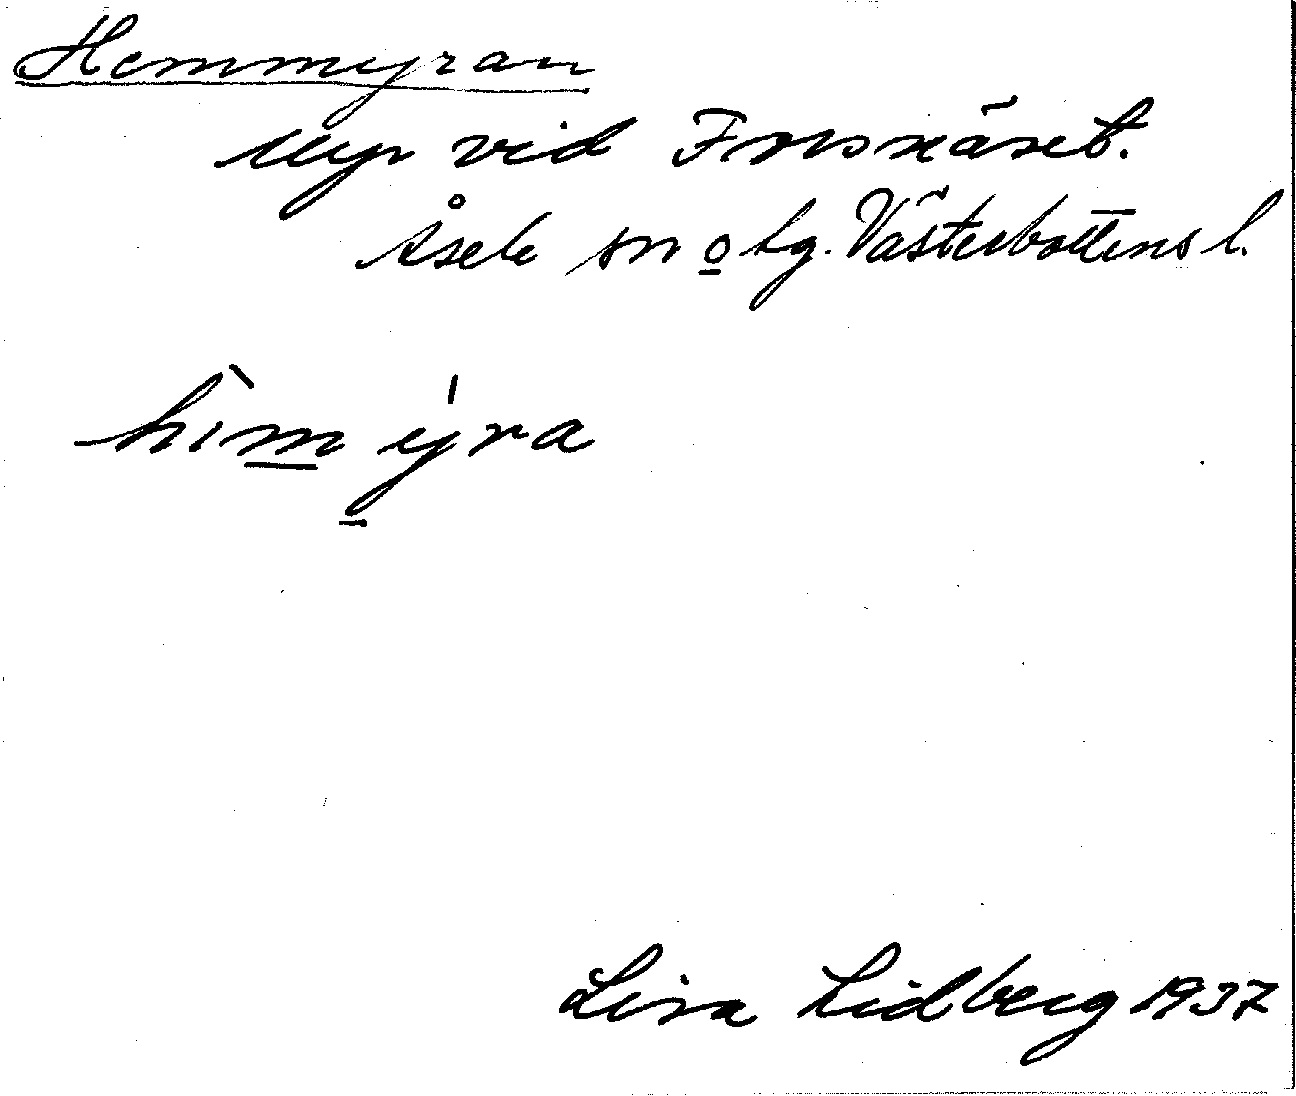 Hemmyran
Myr vid Fresnäset.
Åsele sn o tg. Västerbottens l.
hìmýra
Lisa Lidberg 1937